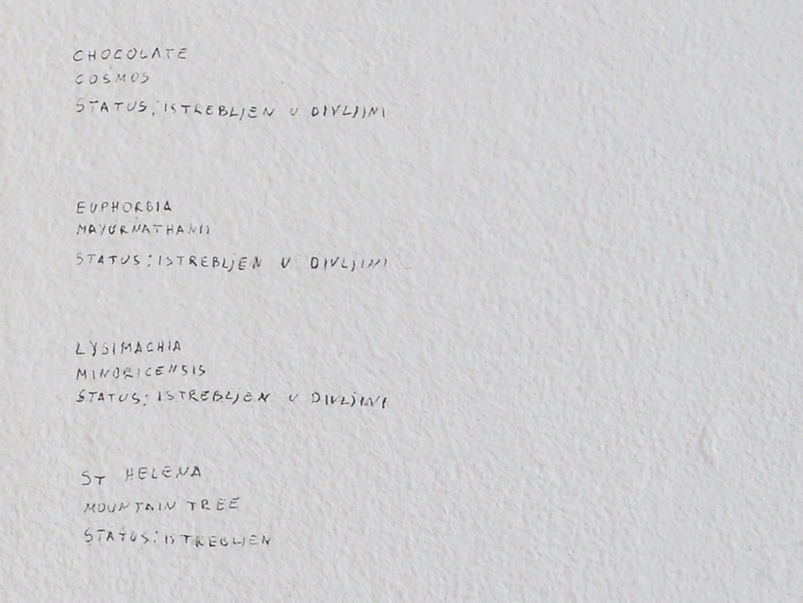 CHOCOLATE
COSMOS
STATUS: ISTREBLJEN U DIVLJINI
EUPHORBIA
MAYURNATHANII
STATUS: ISTREBLJEN U DIVLJINI
LYSIMACHIA
MINORICENSIS
STATUS: ISTREBLJEN U DIVLJINI
ST HELENA
MOUNTAIN TREE
STATUS: ISTREBLJEN